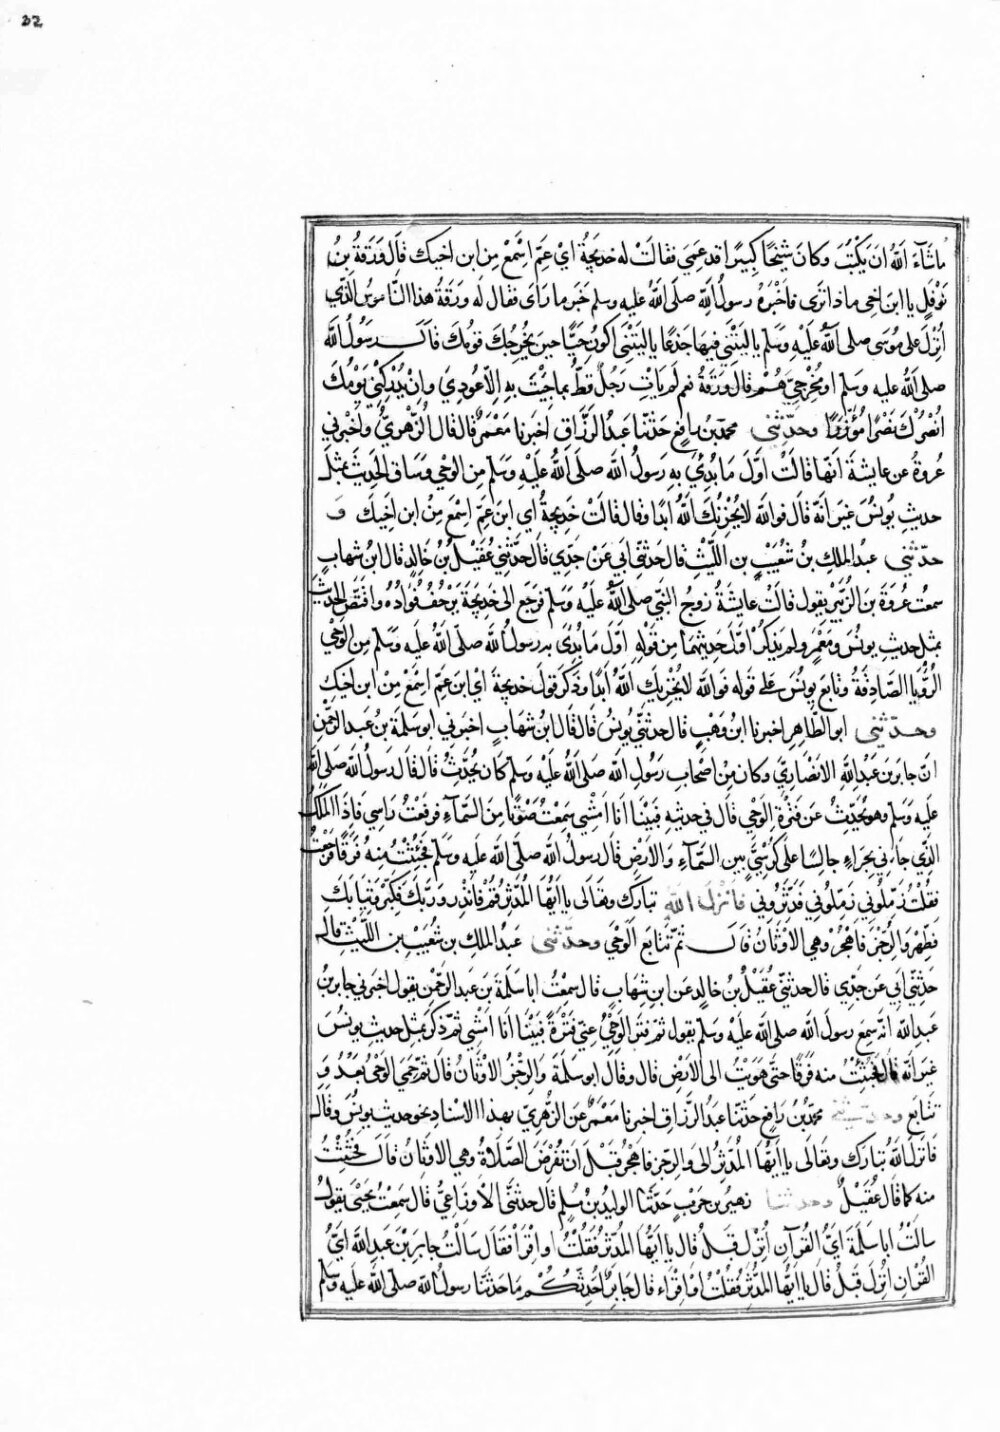 32
ما شَآءَ اللهُ ان يَكْتُبَ وكانَ شَيْخًا كَبِيرًا قد عَمِيَ فقالَتْ له خديجةُ اي عمِّ اسْمَعْ مِن ابن اخيك قال وَرَقةُ بنُ
نَوْفَلٍ يا ابن اخِي ماذا ترَى فاخْبَرَهُ رسولُ اللهِ صلى اللهُ عليه وسلم خَبَرَ ما رَاَى فقال له وَرَقةُ هذا النّاموسُ الَّذي
اُنْزِلَ على مُوسَى صلى اللهُ عَلَيْهِ وَسَلّم ياليْتَنِي فيها جَذَعًا يا لَيْتَنِي اكونُ حَيًّا حينَ يُخْرِجُكَ قومُكَ قالَ رَسُولُ اللهِ
صلى اللهُ عليه وسَلم اوَمُخْرِجِيَّ هُمْ قال وَرَقةُ نعم لم يَاْتِ رَجُلٌ قَطُّ بما جِئْتَ بهِ اِلّا عُودِيَ واِنْ يُدْرِكْنِي يَوْمُكَ
انْصُرْكَ نَصْرًا مُؤَزَّرًا وحدّثني محمّد بن رافِعٍ حَدّثنا عبدُ الرّزّاقِ اخبرنا مَعْمَرٌ قال قال الزُّهْرِيُّ واَخْبَرني
عُروةُ عن عايشةَ انّها قالَتْ اوّلَ ما بُدِئَ بهِ رَسولُ اللهِ صلى اللهُ عَلَيْهِ وَسَلّم مِن الوَحْيِ وَسَاقَ الحَديثَ بمثلِ
حديثِ يونُسَ غيرَ انّه قال فوالله لا يُحْزِنُكَ اللهُ ابَدًا وقال قالتْ خَديجةُ اي ابنَ عَمِّ اسْمَع مِنْ ابن اَخيكَ وَ
حدّثني عبدُ الملكِ بن شُعَيْبِ بن اللّيثِ قال حَدّثني اَبي عَنْ جَدّي قال حَدّثني عُقَيْلُ بنُ خالِدٍ قال ابنُ شهابٍ
سمعتُ عُروَةَ بن الزُّبَيْرِ يقول قالتْ عايشةُ زوجُ النبيّ صلى اللهُ عليه وسَلم فرَجَع الى خديجةَ يَرْجُفُ فؤادُهُ واقْتَصَّ الحديثَ
بمثل حديثِ يونُسَ ومَعْمَرٍ ولم يَذكُرْ اوّلَ حَديثِهما مِن قولِه اوّلَ ما بُدِئَ به رسولُ الله صلى اللهُ عليه وسَلم مِن الوَحْيِ
الرُّؤيا الصّادِقةُ وتابَعَ يونُسَ على قوله فواللهِ لا يُخْزِيكَ اللهُ ابدًا وذكرَ قولَ خديجةَ اي ابن عَمِّ اسْمَعْ مِنْ ابن اخيكَ
وحدّثني ابو الطّاهِرِ اخبرنا ابنُ وَهْبٍ قال حدثني يونُسُ قال قال ابنُ شهابٍ اخبرني ابو سَلمةَ بن عبد الرحمٰن
انّ جابرَ بن عَبدِ اللهِ الانْصارِيَّ وكان مِنْ اصْحابِ رَسُولِ اللهِ صلى اللهُ عليه وسَلم كان يُحَدِّثُ قال قال رَسولُ الله صلى الله
عليه وَسَلم وهو يُحَدِّثُ عن فَتْرَةِ الوَحْيِ قال في حديثهِ فبَيْنا انَا امْشِي سَمِعْتُ صَوْتًا مِنَ السّمآءِ فرفَعْتُ رَاسي فاِذا الملَكُ
الّذي جاءَني بحِراءٍ جالِسًا على كُرْسيٍّ بين السَّمآءِ والارْضِ قال رسولُ اللهِ صلى الله عليه وسَلّم فجُئِثْتُ مِنهُ فَرَقًا فرَجَعْتُ
فقلْتُ زَمِّلُوني زَمِّلوني فدَثَّرُوني فانْزلَ اللهُ تبارك وتعَالى يا اَيُّها المُدّثِّر قُمْ فانْذِر وَرَبَّكَ فكبّر وثِيابَكَ
فطَهِّرْ والرُّجْزَ فاهْجُرْ وهي الاوْثانُ قالَ ثمّ تتابَعَ الوَحْيُ وحدّثني عبدُ الملك بن شُعَيْبِ بن اللّيثِ قال
حَدّثني اَبي عن جَدّي قال حدثني عُقَيْلُ بن خالدٍ عن ابنِ شهابٍ قال سَمِعْتُ ابا سَلمةَ بن عبد الرّحمٰن يقول اخبرني جابرُ بنُ
عَبدِ اللهِ انّه سمع رسولَ اللهِ صلى الله عَلَيْهِ وسَلّم يقول ثمّ فترَ الوَحْيُ عنّي فَتْرَةً فبَيْنَا انَا اَمْشي ثمّ ذكرَ بمثل حديثِ يونُسَ
غيرَ انّه قال فجُئِثْتُ منه فَرَقًا حتّى هَوَيْتُ الى الارْضِ قال وقال ابو سلمَةَ والرّجْزُ الاوْثانُ قال ثُمّ حَمِيَ الوَحْيُ بَعْدُ وَ
تتابَع وحدّثني محمّدُ بنُ رافِعٍ حَدّثنا عبدُ الرّزاقِ اخبرنا مَعْمَرٌ عن الزُّهْرِيِّ بهذا الاسْنادِ نحوَ حديثِ يونُسَ وقال
فانزَل اللهُ تبارَك وتَعَالى يا ايُّها المُدَّثِّرُ الى والرّجْزَ فاهْجُرْ قبْلَ اَن تُفرَضَ الصّلاةُ وهي الاوثانُ قالَ فجُثِثْتُ
منه كما قال عُقَيْلٌ وحدثنا زهيرُ بن حَرْبٍ حَدّثنا الوليدُ بنُ مُسْلمٍ قال حدثني الاوزاعِيُّ قال سَمِعْتُ يَحْيَى يقولُ
سالتُ ابا سَلَمَةَ ايُّ القُرآنِ اُنْزِلَ قبلُ قال يا ايّها المُدّثِّر فقُلْتُ اوِ اقْرَاْ فقَالَ سَاَلْتُ جابِرَ بْنَ عَبدِ اللهِ ايُّ
القُرْانِ اُنْزِلَ قَبلُ قال يا ايُّها المُدَّثِّر فقُلْتُ اوِ اِقْرَاء قال جَابِرٌ اُحَدِّثُكُمْ ما حَدثنا رسولُ اللهِ صلى الله عليه وسلم